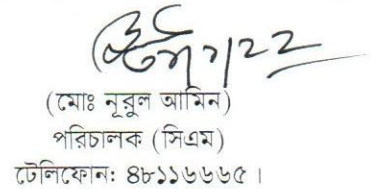 (মোঃ নূরুল আমিন)
পরিচালক (সিএম)
টেলিফোন: ৪৮১১৬৬৬৫ ।